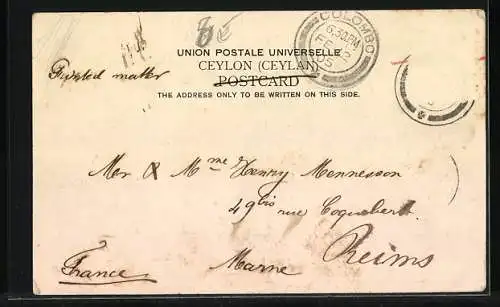 COLOMBO
6.30 PM
05
UNION POSTALE UNIVERSELLE
CEYLON (CEYLAN)
POSTCARD
THE ADDRESS ONLY TO BE WRITTEN ON THIS SIDE.
Printed matter
Mer & Mme Henny Mennesson
49bis rue Coquebert
Reims
Marne
France